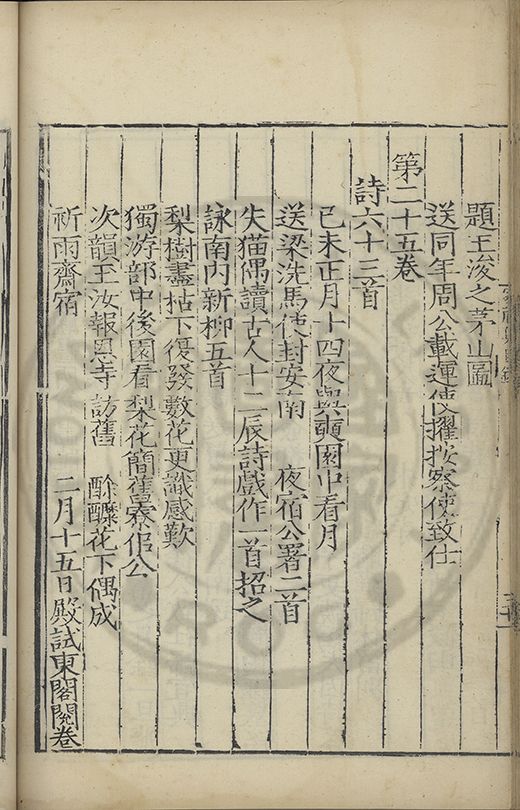 題王浚之茅山圖
送同年周公載運使擢按察使致仕
第二十五卷
詩六十三首
己未正月十四夜與奭園中看月
送梁洗馬使封安南 夜宿公署二首
失猫偶讀古人十二辰詩戲作一首招之
詠南內新柳五首
梨樹盡枯下復發數花更識感歎
獨游部中後園看梨花簡舊寮佀公
次韻王汝報恩寺訪舊 酴醾花下偶成
祈雨齋宿 二月十五日殿試東閣閱卷